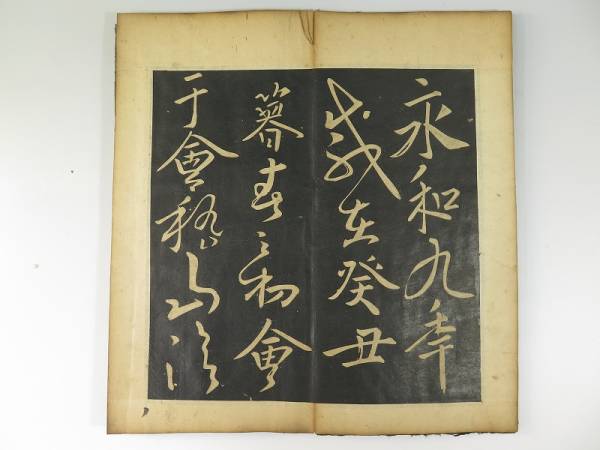 永和九年
歲在癸丑
暮春之初會
于會稽山陰